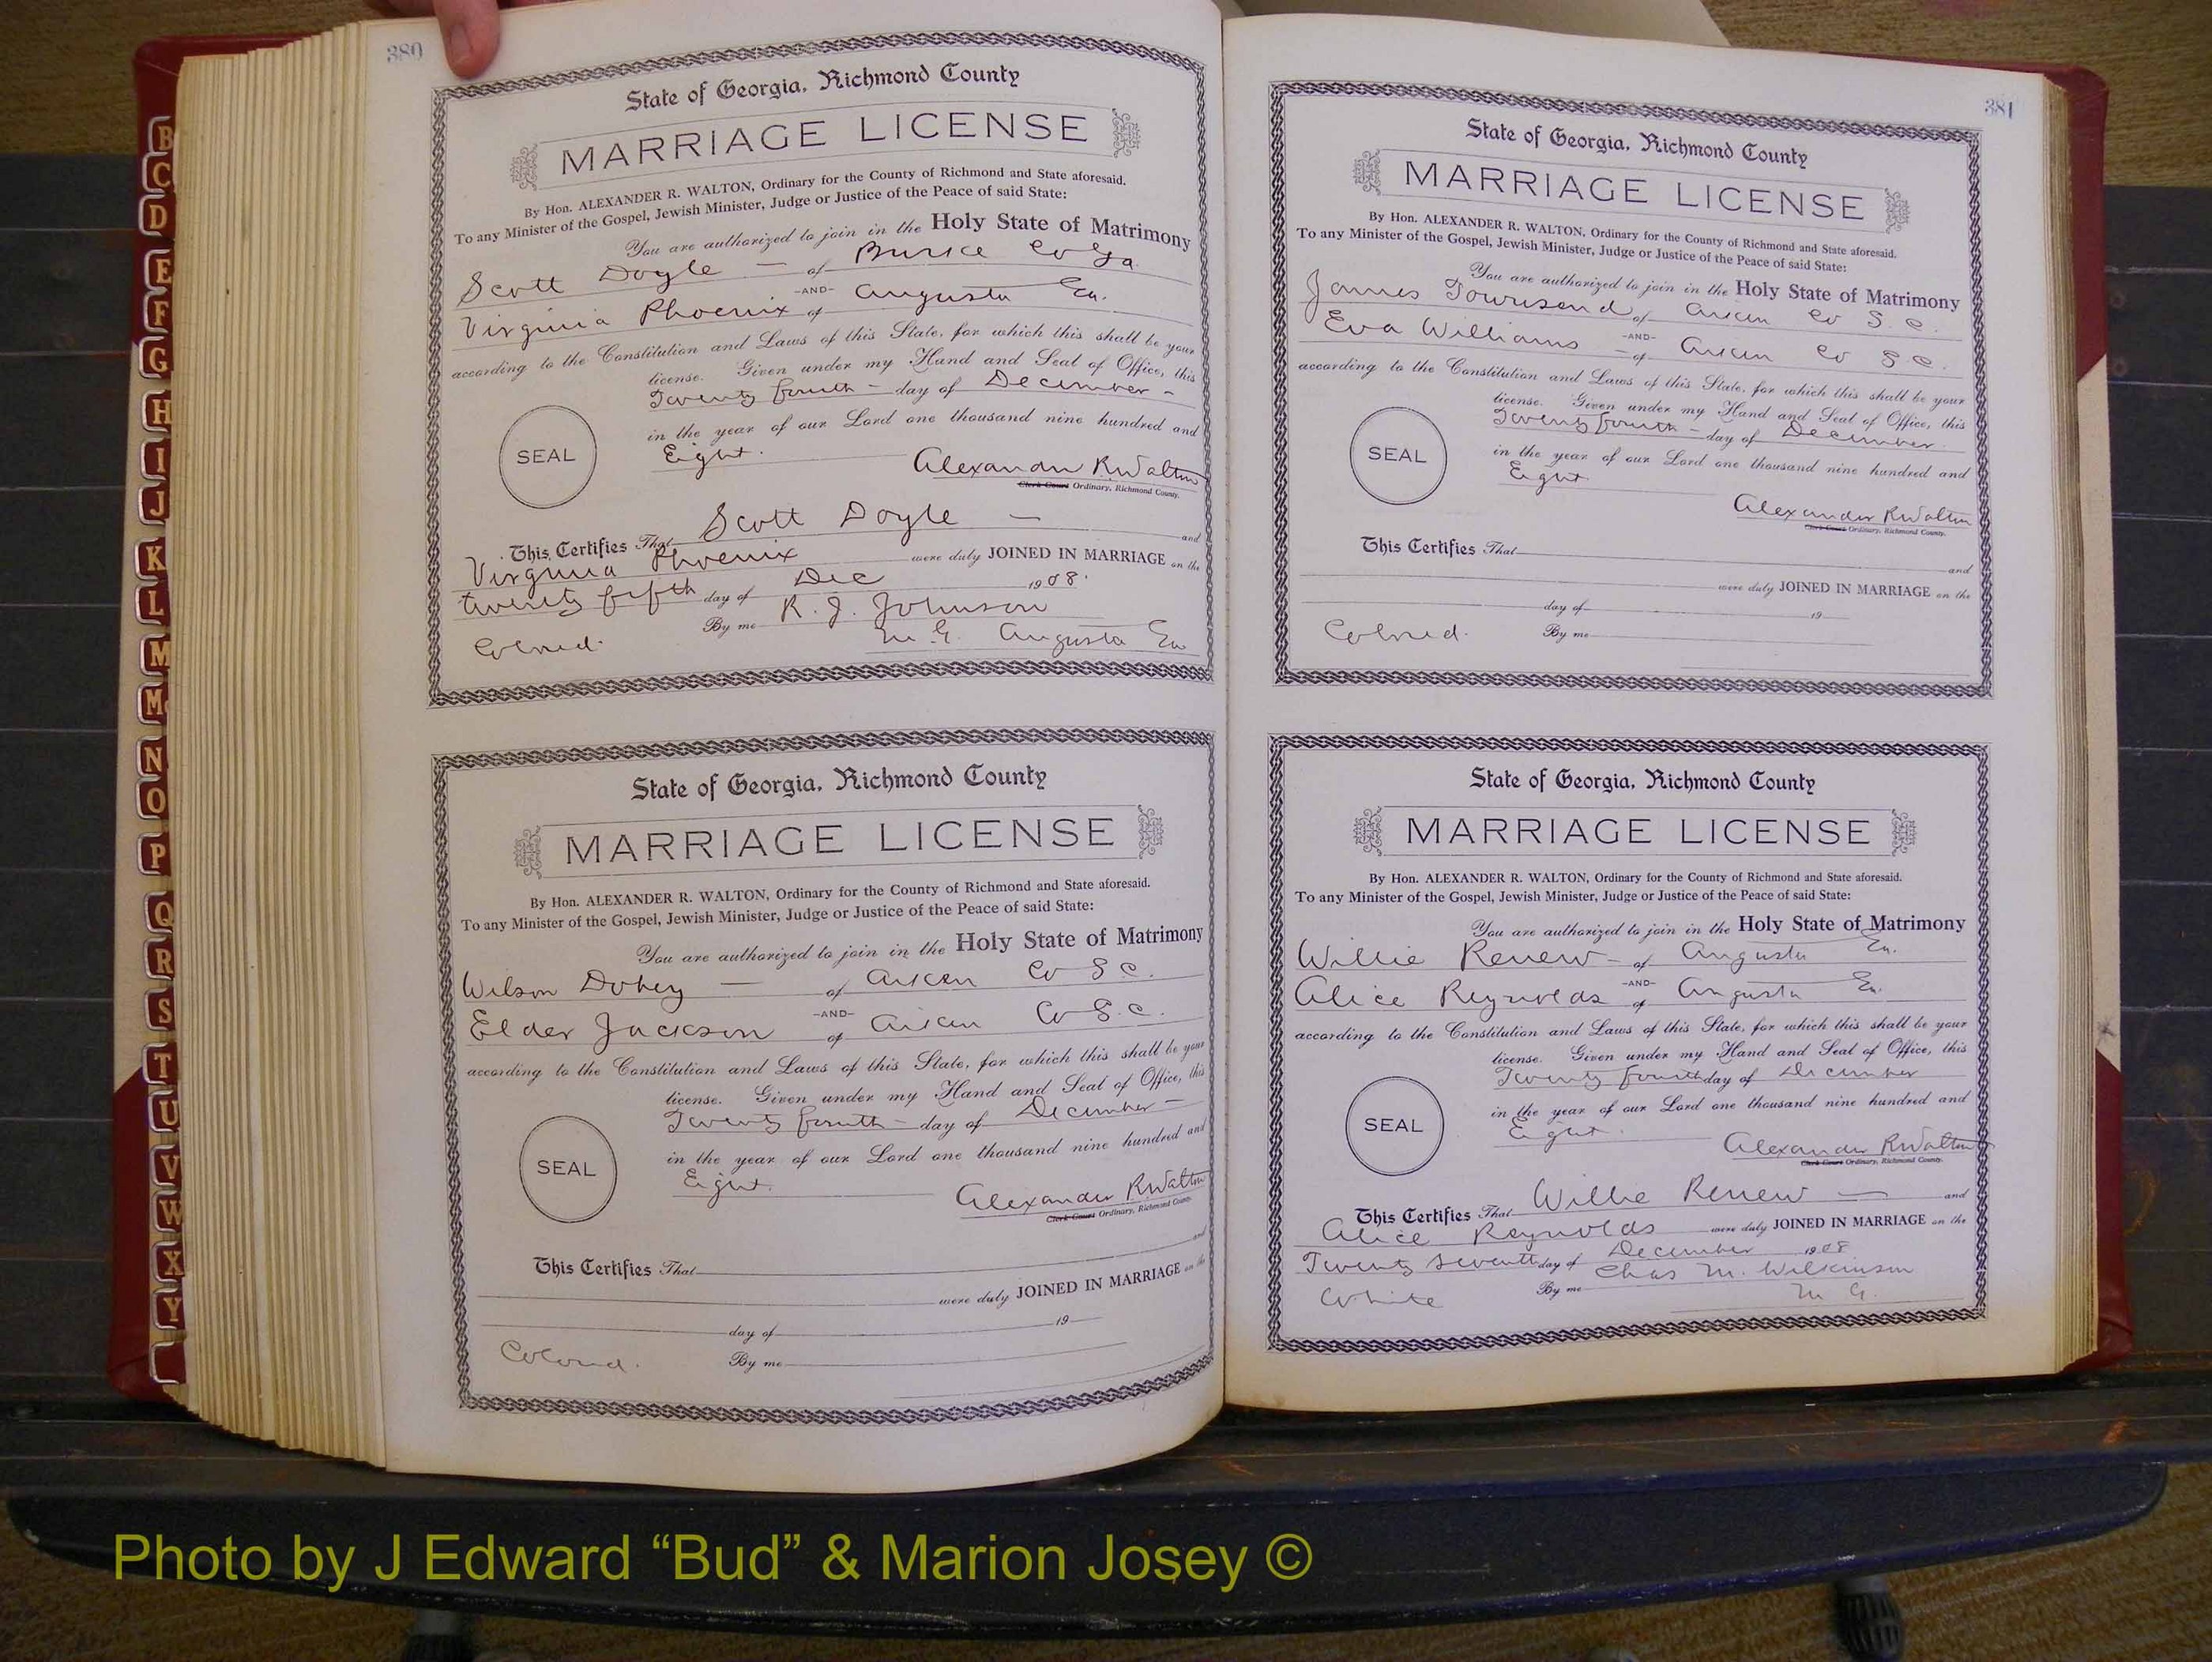 380
State of Georgia, Richmond County
MARRIAGE LICENSE
By Hon. ALEXANDER R. WALTON, Ordinary for the County of Richmond and State aforesaid.
To any Minister of the Gospel, Jewish Minister, Judge or Justice of the Peace of said State:
You are authorized to join in the Holy State of Matrimony
Scott Doyle — of Burke Co Ga.
-AND-
Virginia Phoenix of Augusta Ga.
according to the Constitution and Laws of this State, for which this shall be your
license. Given under my Hand and Seal of Office, this
Twenty fourth - day of December -
in the year of our Lord one thousand nine hundred and
SEAL
Eight.
Alexander R Walton
Clerk Court Ordinary, Richmond County.
This Certifies That Scott Doyle — and
Virginia Phoenix were duly JOINED IN MARRIAGE on the
twenty fifth day of Dec 1908.
By me R. J. Johnson
Colored. M. G. Augusta Ga
State of Georgia, Richmond County
MARRIAGE LICENSE
By Hon. ALEXANDER R. WALTON, Ordinary for the County of Richmond and State aforesaid.
To any Minister of the Gospel, Jewish Minister, Judge or Justice of the Peace of said State:
You are authorized to join in the Holy State of Matrimony
Wilson Dobey — of Aiken Co S C.
-AND-
Elder Jackson of Aiken Co S. C.
according to the Constitution and Laws of this State, for which this shall be your
license. Given under my Hand and Seal of Office, this
Twenty fourth - day of December -
in the year of our Lord one thousand nine hundred and
SEAL
Eight.
Alexander R Walton
Clerk Court Ordinary, Richmond County.
and
This Certifies That
were duly JOINED IN MARRIAGE on the
day of 19
Colored. By me
381
State of Georgia, Richmond County
MARRIAGE LICENSE
By Hon. ALEXANDER R. WALTON, Ordinary for the County of Richmond and State aforesaid.
To any Minister of the Gospel, Jewish Minister, Judge or Justice of the Peace of said State:
You are authorized to join in the Holy State of Matrimony
James Townsend of Aiken Co S. C.
-AND-
Eva Williams - of Aiken Co S C.
according to the Constitution and Laws of this State, for which this shall be your
license. Given under my Hand and Seal of Office, this
Twenty fourth - day of December
in the year of our Lord one thousand nine hundred and
SEAL
Eight
Alexander R Walton
Clerk Court Ordinary, Richmond County.
This Certifies That
and
were duly JOINED IN MARRIAGE on the
day of 19
Colored. By me
State of Georgia, Richmond County
MARRIAGE LICENSE
By Hon. ALEXANDER R. WALTON, Ordinary for the County of Richmond and State aforesaid.
To any Minister of the Gospel, Jewish Minister, Judge or Justice of the Peace of said State:
You are authorized to join in the Holy State of Matrimony
Willie Renew - of Augusta Ga.
-AND-
Alice Reynolds of Augusta Ga.
according to the Constitution and Laws of this State, for which this shall be your
license. Given under my Hand and Seal of Office, this
Twenty fourth day of December
in the year of our Lord one thousand nine hundred and
SEAL
Eight.
Alexander R Walton
Clerk Court Ordinary, Richmond County.
This Certifies That Willie Renew — and
Alice Reynolds were duly JOINED IN MARRIAGE on the
Twenty seventh day of December 1908
By me Chas M. Wilkinson
White M G.
B
C
D
E
F
G
H
I
J
K
L
M
Mc
N
O
P
Q
R
S
T
U
V
W
X
Y
Photo by J Edward “Bud” & Marion Josey ©